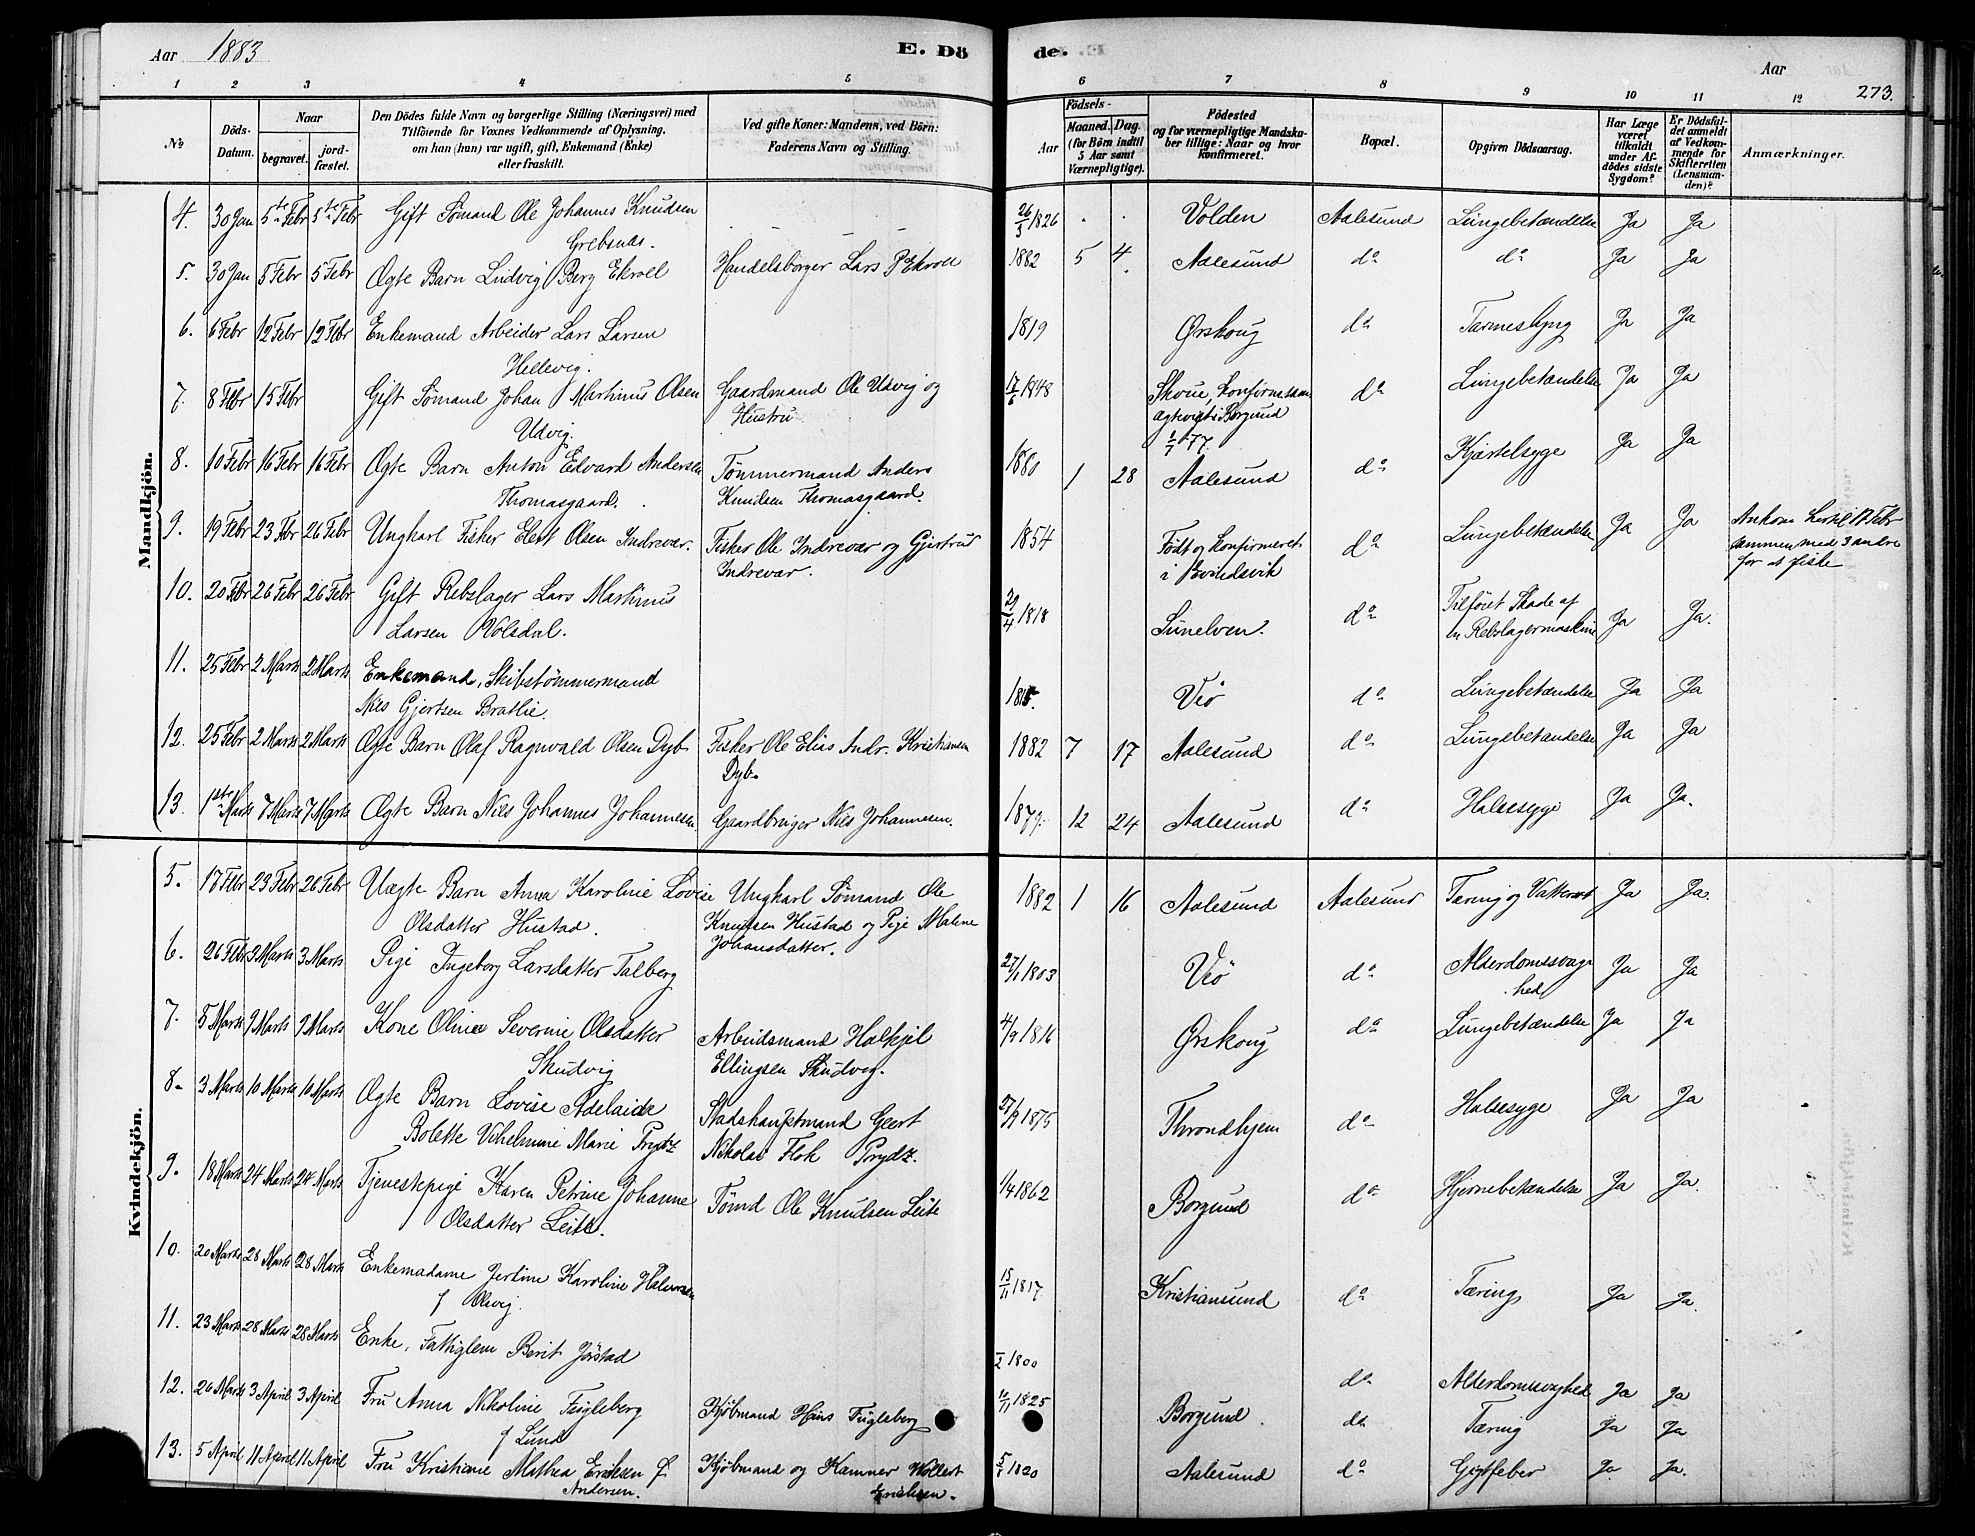 Aar 1883
E. Dö
1 2 3 4 5
No
Döds-Datum.
Naar
begravet.
jord-fæstet.
Den Dödes fulde Navn og borgerlige Stilling (Næringsvei) med
Tilföiende for Voxnes Vedkommende af Oplysning,
om han (hun) var ugift, gift, Enkemand (Enke)
eller fraskilt.
Ved gifte Koner: Mandens, ved Börn:
Faderens Navn og Stilling.
Mandkjön.
4. 30 Jan 5te Febr 5te Febr Gift Sømand Ole Johannes Knudsen
Grebsnæs.
5. 30 Jan 5 Febr 5 Febr Ægte Barn Ludvig Berg Ekroll Handelsborger Lars P Ekroll
6. 6 Febr 12 Febr 12 Febr Enkemand Arbeider Lars Larsen
Hellevig.
7. 8 Febr 15 Febr Gift Sømand Johan Martinus Olsen Gaardmand Ole Udvig og
Udvig. Hustru
8. 10 Febr 16 Febr 16 Febr Ægte Barn Anton Edvard Andersen Tømmermand Anders
Thomasgaard. Knudsen Thomasgaard.
9. 19 Febr 23 Febr 26 Febr Ungkarl Fisker Elert Olsen Indrevær. Fisker Ole Indrevær og Gjertrud
Indrevær.
10. 20 Febr 26 Febr 26 Febr Gift Rebslager Lars Martinus
Larsen Kolsdal.
11. 25 Febr 2 Marts 2 Marts Enkemand, Skibstömmermand
Nils Gjertsen Bratlie.
12. 25 Febr 2 Marts 2 Marts Ægte Barn Olaf Ragnvald Olsen Dyb Fisker Ole Elias Andr. Kristiansen
Dyb.
13. 1ste Marts 7 Marts 7 Marts Ægte Barn Nils Johannes Johannesen Gaardbruger Nils Johannesen.
Kvindekjön.
5. 17 Febr 23 Febr 26 Febr Uægte Barn Anna Karoline Lovise Ungkarl Sømand Ole
Olsdatter Hustad. Knudsen Hustad og Pige Malene
Johansdatter.
6. 26 Febr 3 Marts 3 Marts Pige Ingeborg Larsdatter Talberg
7. 5 Marts 9 Marts 9 Marts Kone Oline Severine Olsdatter Arbeidsmand Halkjel
Skudvig Ellingsen Skudvig.
8. 3 Marts 10 Marts 10 Marts Ægte Barn Lovise Adelaide Stadshauptmand Geert
Bolette Vilhelmine Marie Prydz Nikolai Floh Prydz.
9. 18 Marts 24 Marts 24 Marts Tjenestepige Karen Petrine Johanne Tømd Ole Knudsen Leite
Olsdatter Leite.
10. 20 Marts 28 Marts 28 Marts Enkemadame Jertine Karoline Halvorsen
f Olvig.
11. 23 Marts 28 Marts 28 Marts Enke, Fattiglem Berit Jörstad
12. 26 Marts 3 April 3 April Fru Anna Nikoline Fugleberg Kjöbmand Hans Fugleberg
f Lund
13. 5 April 11 April 11 April Fru Kristiane Mathea Eriksen f Kjöbmand og Kæmner Wollert
Andersen. Eriksen.
de.
Aar
273.
6 7 8 9 10 11 12
Födsels-
Aar
Maaned. Dag.
(for Börn indtil
5 Aar samt
Værnepligtige).
Födested
og for værnepligtige Mandska-
ber tillige: Naar og hvor
Konfirmeret.
Bopæl.
Opgiven Dödsaarsag.
Har Læge
været
tilkaldt
under Af-
dödes sidste
Sygdom?
Er Dödsfal-
det anmeldt
af Vedkom-
mende for
Skifteretten
(Lensman-
den)?
Anmærkninger.
26/3 1826 . . Volden Aalesund Lungebetændelse Ja Ja
1882 5 4 Aalesund do do Ja Ja
1819 Ørskoug do Tarmeslyng Ja Ja
17/6 1848 Skoue, Konfirmeret
i Borgund
1/7 77. do Lungebetændelse Ja Ja
1880 1 28 Aalesund do Kjertelsyge Ja Ja
1854 Født og Konfirmeret
i do Lungebetændelse Ja Ja Ankom hertil 17 Febr
sammen med 3 andre
for at fiske
29/4 1818 Sunelven. do Tilføiet Skade af
en Rebslagermaskine Ja Ja.
1815. Veö do Lungebetændelse Ja Ja
1882 7 17 Aalesund do Lungebetændelse Ja Ja
1879. 12 24 Aalesund do Halsesyge Ja Ja.
1882 1 16 Aalesund Aalesund Tæring og Vattersot Ja Ja.
27/1 1803 Veö do Alderdomssvag
hed Ja Ja
4/9 1816 Ørskoug do Lungebetændelse Ja Ja
27/9 1875 Throndhjem do Halsesyge Ja Ja
1/4 1862 Borgund do Hjernebetændelse Ja Ja.
15/11 1817 Kristiansund do Tæring Ja Ja.
1800 do Alderdomssvaghed Ja Ja
1825 Borgund. do Tæring Ja Ja
1820 Aalesund do Gigtfeber Ja Ja.